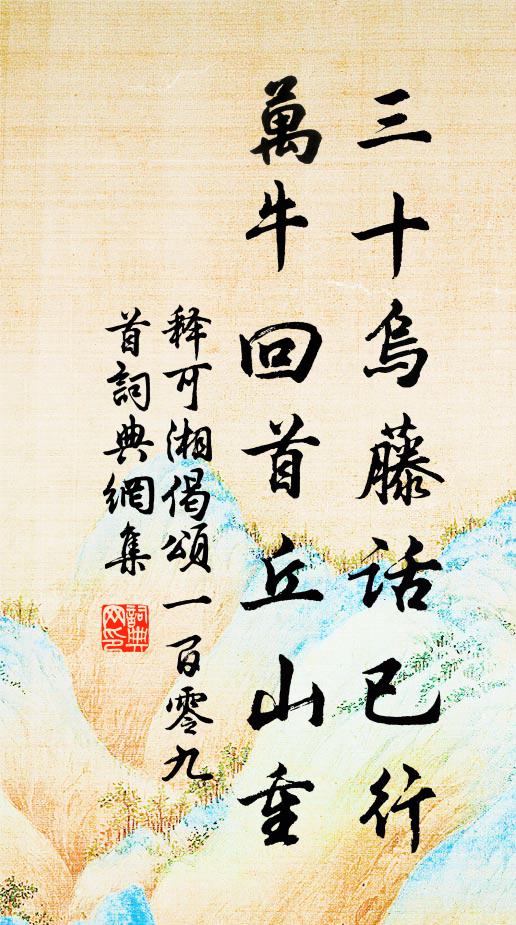 三十烏藤話已行
萬牛回首丘山重
釋可湘偈頌一百零九
首詞典網集
詞典
网